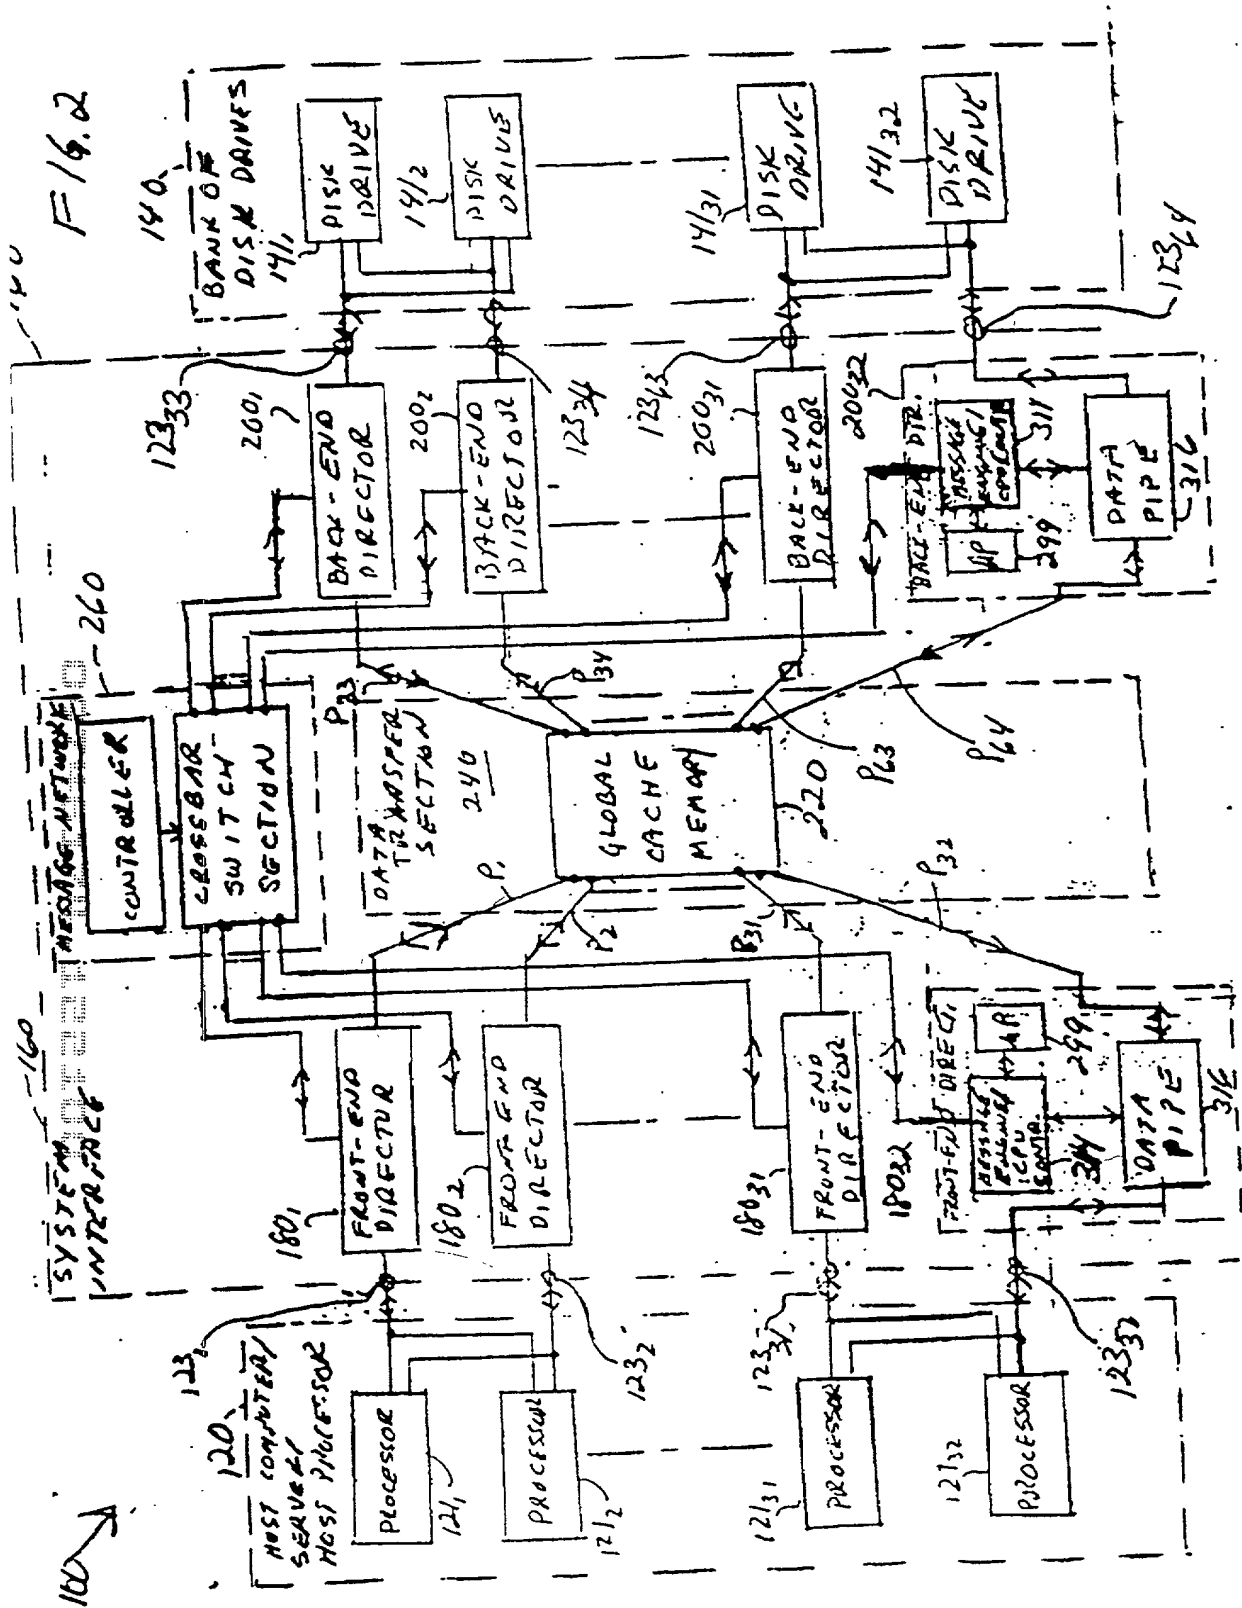 FIG. 2
100
120
HOST COMPUTER/
SERVER/
HOST PROCESSOR
PROCESSOR
121₁
PROCESSOR
121₂
PROCESSOR
121₃₁
PROCESSOR
121₃₂
123₁
123₂
123₃₁
123₃₂
160
SYSTEM
INTERFACE
180₁
FRONT-END
DIRECTOR
180₂
FRONT END
DIRECTOR
180₃₁
FRONT-END
DIRECTOR
180₃₂
FRONT-END DIRECT.
MESSAGE
ENGINE/
CPU
CONTR.
314
299
DATA
PIPE
316
MESSAGE NETWORK
260
CONTROLLER
CROSSBAR
SWITCH
SECTION
DATA
TRANSFER
SECTION
240
GLOBAL
CACHE
MEMORY
220
P₁
P₂
P₃₁
P₃₂
P₃₃
P₃₄
P₆₃
P₆₄
BACK-END
DIRECTOR
200₁
BACK-END
DIRECTOR
200₂
BACK-END
DIRECTOR
200₃₁
200₃₂
BACK-END DIR.
299
DATA
PIPE
316
123₃₃
123₃₄
123₆₃
123₆₄
140
BANK OF
DISK DRIVES
141₁
DISK
DRIVE
141₂
DISK
DRIVE
141₃₁
DISK
DRIVE
141₃₂
DISK
DRIVE